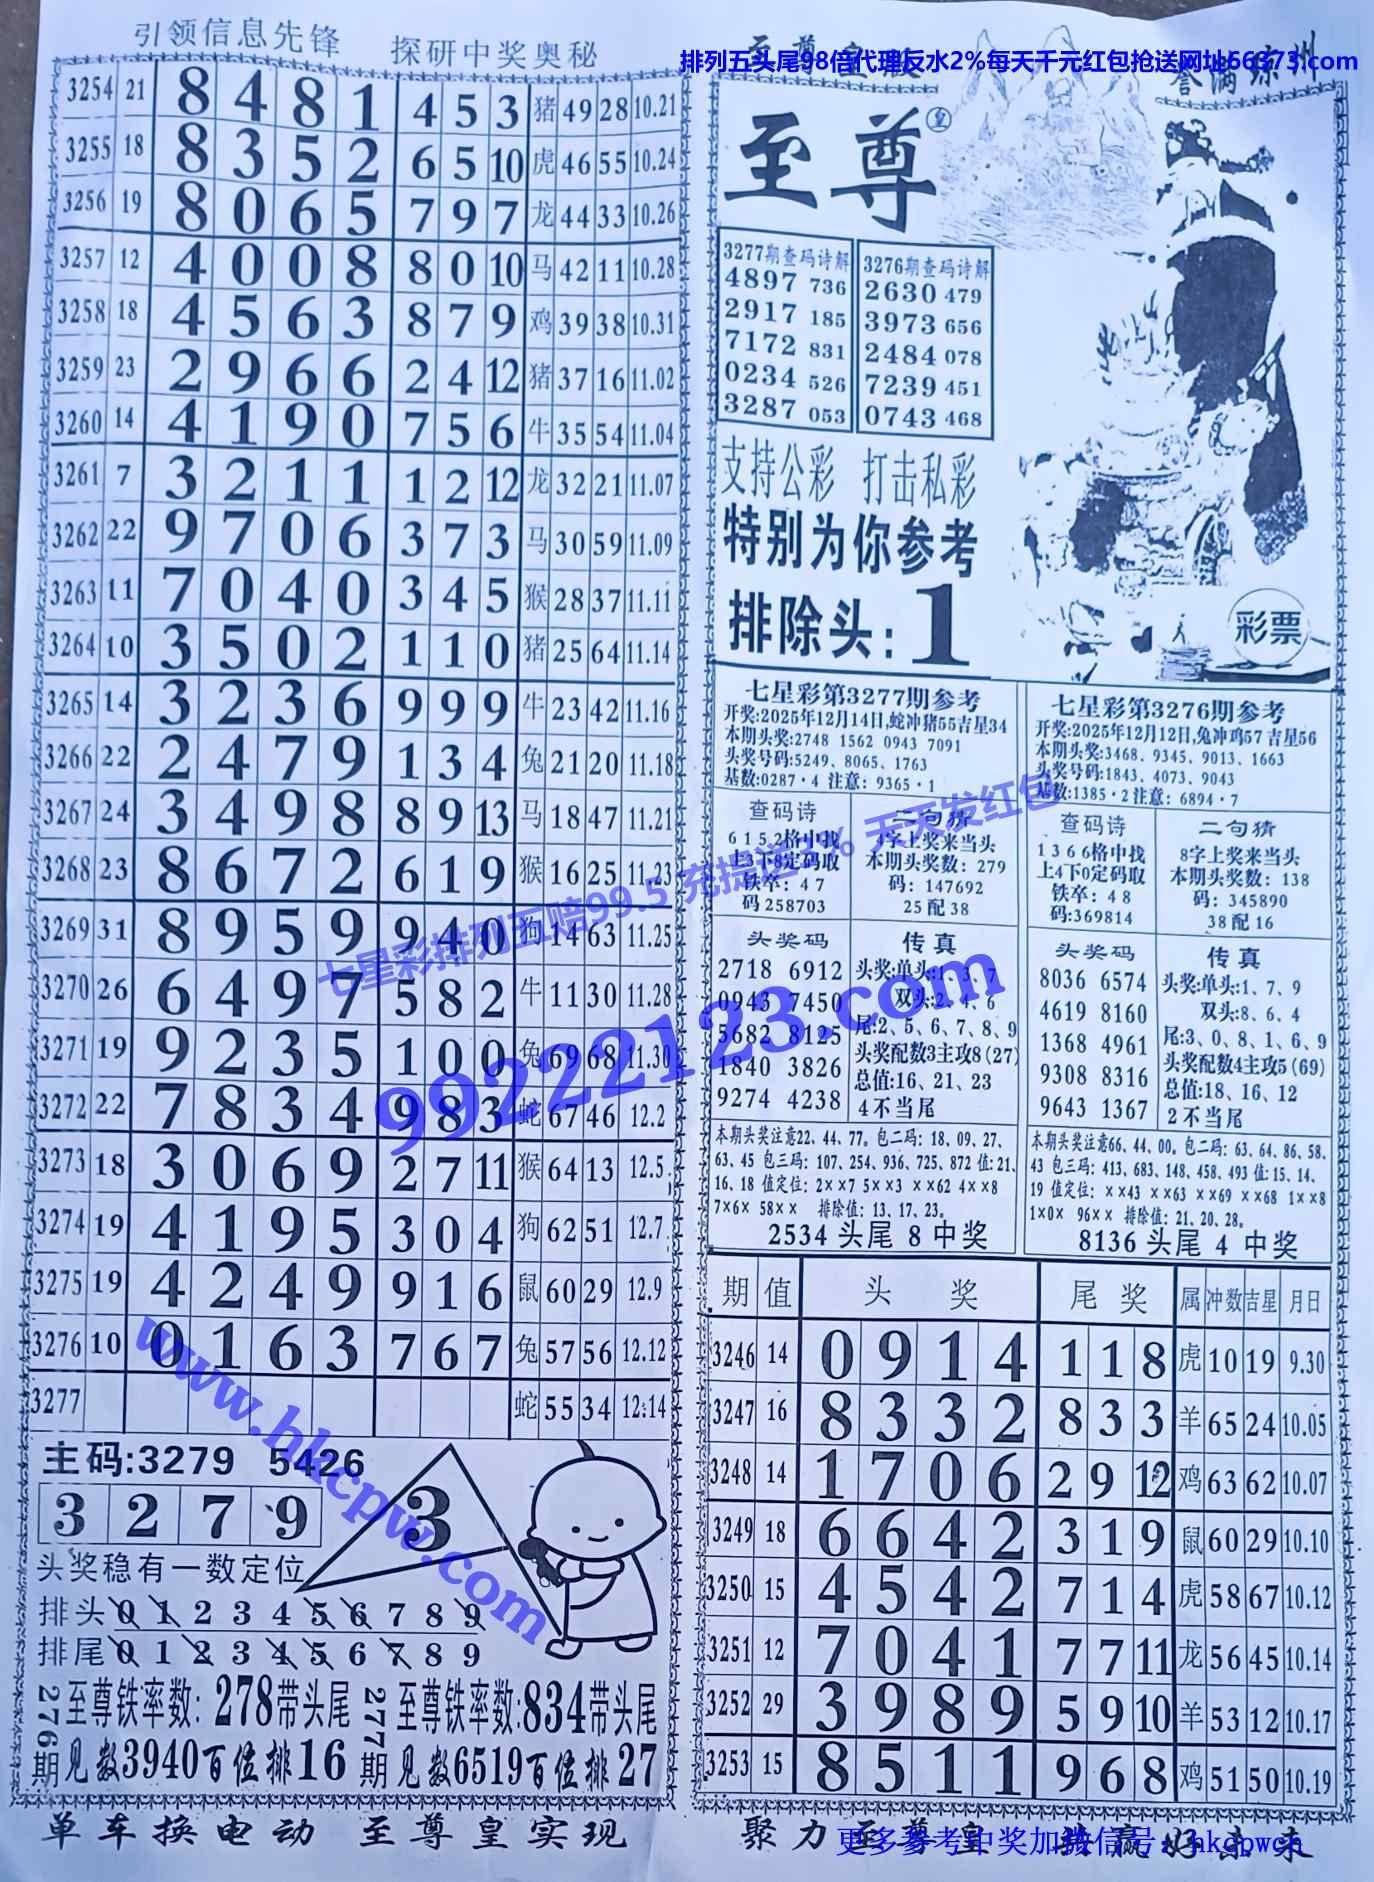 引领信息先锋 探研中奖奥秘
排列五头尾98倍代理反水2%每天千元红包抢送网址66373.com
3254 21 8 4 8 1 4 5 3 猪 49 28 10.21
3255 18 8 3 5 2 6 5 10 虎 46 55 10.24
3256 19 8 0 6 5 7 9 7 龙 44 33 10.26
3257 12 4 0 0 8 8 0 10 马 42 11 10.28
3258 18 4 5 6 3 8 7 9 鸡 39 38 10.31
3259 23 2 9 6 6 2 4 12 猪 37 16 11.02
3260 14 4 1 9 0 7 5 6 牛 35 54 11.04
3261 7 3 2 1 1 1 2 12 龙 32 21 11.07
3262 22 9 7 0 6 3 7 3 马 30 59 11.09
3263 11 7 0 4 0 3 4 5 猴 28 37 11.11
3264 10 3 5 0 2 1 1 0 猪 25 64 11.14
3265 14 3 2 3 6 9 9 9 牛 23 42 11.16
3266 22 2 4 7 9 1 3 4 兔 21 20 11.18
3267 24 3 4 9 8 8 9 13 马 18 47 11.21
3268 23 8 6 7 2 6 1 9 猴 16 25 11.23
3269 31 8 9 5 9 9 4 0 狗 14 63 11.25
3270 26 6 4 9 7 5 8 2 牛 11 30 11.28
3271 19 9 2 3 5 1 0 0 兔 69 68 11.30
3272 22 7 8 3 4 9 8 3 蛇 67 46 12.2
3273 18 3 0 6 9 2 7 11 猴 64 13 12.5
3274 19 4 1 9 5 3 0 4 狗 62 51 12.7
3275 19 4 2 4 9 9 1 6 鼠 60 29 12.9
3276 10 0 1 6 3 7 6 7 兔 57 56 12.12
3277 蛇 55 34 12.14
主码:3279 5426
3 2 7 9
3
头奖稳有一数定位
排头 0 1 2 3 4 5 6 7 8 9
排尾 0 1 2 3 4 5 6 7 8 9
276期 至尊铁率数: 278带头尾
见数3940百位排16
277期 至尊铁率数:834带头尾
见数6519百位排27
单车换电动 至尊皇实现
至尊
皇
3277期查码诗解
4897 736
2917 185
7172 831
0234 526
3287 053
3276期查码诗解
2630 479
3973 656
2484 078
7239 451
0743 468
支持公彩 打击私彩
特别为你参考
排除头:1
彩票
七星彩第3277期参考
开奖:2025年12月14日,蛇冲猪55吉星34
本期头奖:2748 1562 0943 7091
头奖号码:5249、8065、1763
基数:0287·4 注意: 9365·1
查码诗
6 1 5 2格中找
上3下8定码取
铁卒: 4 7
码 258703
二句猜
4字上奖来当头
本期头奖数: 279
码: 147692
25 配 38
头奖码
2718 6912
0943 7450
5682 8125
1840 3826
9274 4238
传真
头奖:单头:1、3、7
双头:2、4、6
尾:2、5、6、7、8、9
头奖配数3主攻8(27)
总值:16、21、23
4 不当尾
本期头奖注意22、44、77。包二码: 18、09、27、
63、45 包三码: 107、254、936、725、872 值:21、
16、18 值定位: 2××7 5××3 ××62 4××8
7×6× 58×× 排除值: 13、17、23。
2534 头尾 8 中奖
七星彩第3276期参考
开奖:2025年12月12日,兔冲鸡57 吉星56
本期头奖:3468、9345、9013、1663
头奖号码:1843、4073、9043
基数:1385·2 注意: 6894·7
查码诗
1 3 6 6格中找
上4下0定码取
铁卒: 4 8
码:369814
二句猜
8字上奖来当头
本期头奖数: 138
码: 345890
38 配 16
头奖码
8036 6574
4619 8160
1368 4961
9308 8316
9643 1367
传真
头奖:单头:1、7、9
双头:8、6、4
尾:3、0、8、1、6、9
头奖配数4主攻5(69)
总值:18、16、12
2 不当尾
本期头奖注意66、44、00。包二码: 63、64、86、58、
43 包三码: 413、683、148、458、493 值:15、14、
19 值定位: ××43 ××63 ××69 ××68 1××8
1×0× 96×× 排除值: 21、20、28。
8136 头尾 4 中奖
期 值 头奖 尾奖 属 冲数 吉星 月日
3246 14 0 9 1 4 1 1 8 虎 10 19 9.30
3247 16 8 3 3 2 8 3 3 羊 65 24 10.05
3248 14 1 7 0 6 2 9 12 鸡 63 62 10.07
3249 18 6 6 4 2 3 1 9 鼠 60 29 10.10
3250 15 4 5 4 2 7 1 4 虎 58 67 10.12
3251 12 7 0 4 1 7 7 11 龙 56 45 10.14
3252 29 3 9 8 9 5 9 10 羊 53 12 10.17
3253 15 8 5 1 1 9 6 8 鸡 51 50 10.19
聚力至尊皇
更多参考中奖加微信号: hkcpwcn
七星彩排列五赔99.5 充提送2% 天天发红包
99222123.com
www.hkcpw.com